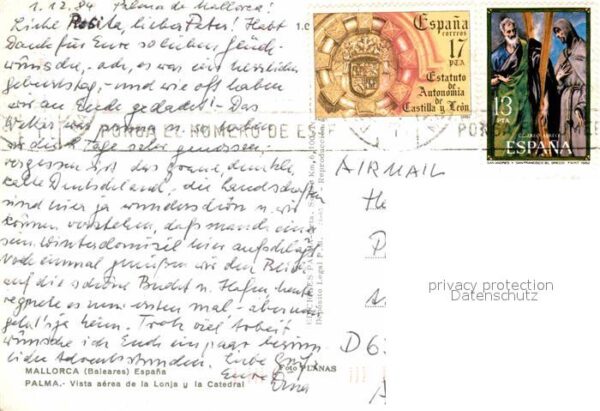 1.12.84 Palma de Mallorca!
Liebe Rosita, lieber Peter! Habt
Dank für Eure so lieben Glück-
wünsche, - ach, es war ein herrlicher
Geburtstag, - und wie oft haben
wir an Euch gedacht! - Das
Wetter war
wir die Tage sehr genossen,
vergessen ist das graue, dunkle,
kalte Deutschland, die Landschaften
sind hier ja wunderschön u. wir
können verstehen, dass manch einer
sein Winterdomizil hier aufschlägt
Noch einmal genießen wir den Blick
auf die schöne Bucht u. Hafen, heute
regnete es zum ersten Mal - aber nun
geht's ja heim. Trotz viel Arbeit
wünsche ich Euch ein paar besinn-
liche Adventsstunden. Liebe Grüße
Eure
MALLORCA (Baleares) España
Foto PLANAS
PALMA.- Vista aérea de la Lonja y la Catedral
PONGA EL NUMERO DE
España
correos
17
PTA
Estatuto
de
Autonomía
de
Castilla y León
13
PTA
CORREOS
ESPAÑA
PONGA
AIRMAIL
D 6
privacy protection
Datenschutz